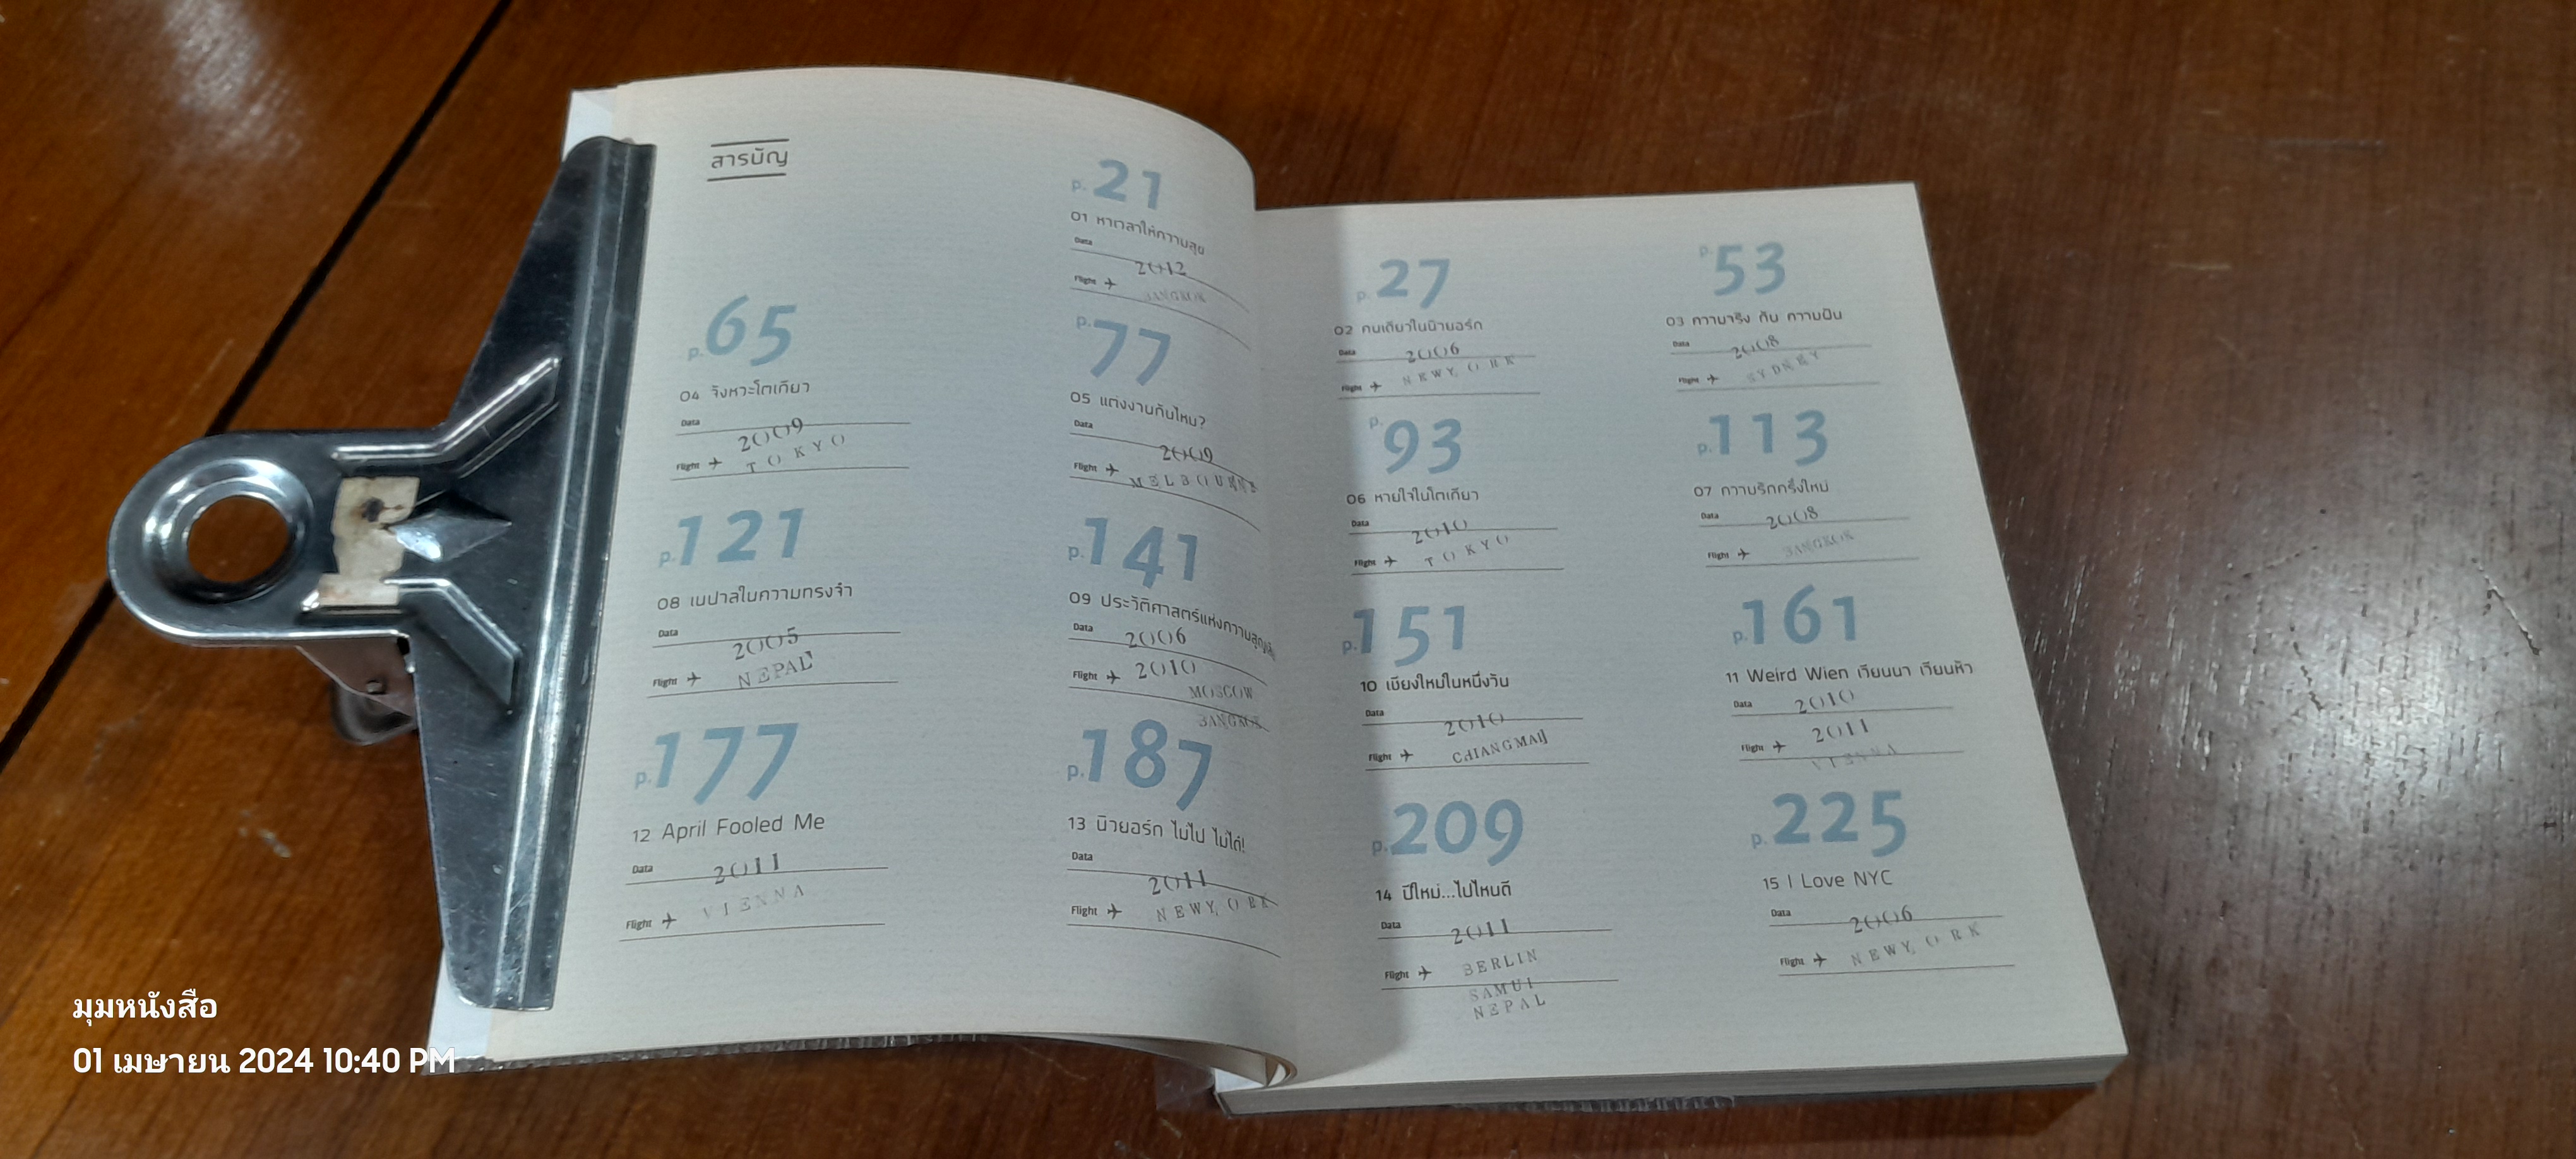 สารบัญ
p.21
01 หาเวลาให้ความสุข
Data
2012
Flight
BANGKOK
p.65
04 จังหวะโตเกียว
Data
2009
Flight
TOKYO
p.77
05 แต่งงานกันไหม?
Data
2009
Flight
MELBOURNE
p.121
08 เนปาลในความทรงจำ
Data
2005
Flight
NEPAL
p.141
09 ประวัติศาสตร์แห่งความสูญเสีย
Data
2006
Flight
2010
MOSCOW
BANGKOK
p.177
12 April Fooled Me
Data
2011
Flight
VIENNA
p.187
13 นิวยอร์ก ไม่ไป ไม่ได้!
Data
2011
Flight
NEWYORK
p.27
02 คนเดียวในนิวยอร์ก
Data
2006
Flight
NEWYORK
p.53
03 ความจริง กับ ความฝัน
Data
2008
Flight
SYDNEY
p.93
06 หายใจในโตเกียว
Data
2010
Flight
TOKYO
p.113
07 ความรักครั้งใหม่
Data
2008
Flight
BANGKOK
p.151
10 เชียงใหม่ในหนึ่งวัน
Data
2010
Flight
CHIANGMAI
p.161
11 Weird Wien เวียนนา เวียนหัว
Data
2010
Flight
2011
VIENNA
p.209
14 ปีใหม่...ไปไหนดี
Data
2011
Flight
BERLIN
SAMUI
NEPAL
p.225
15 I Love NYC
Data
2006
Flight
NEWYORK
มุมหนังสือ
01 เมษายน 2024 10:40 PM